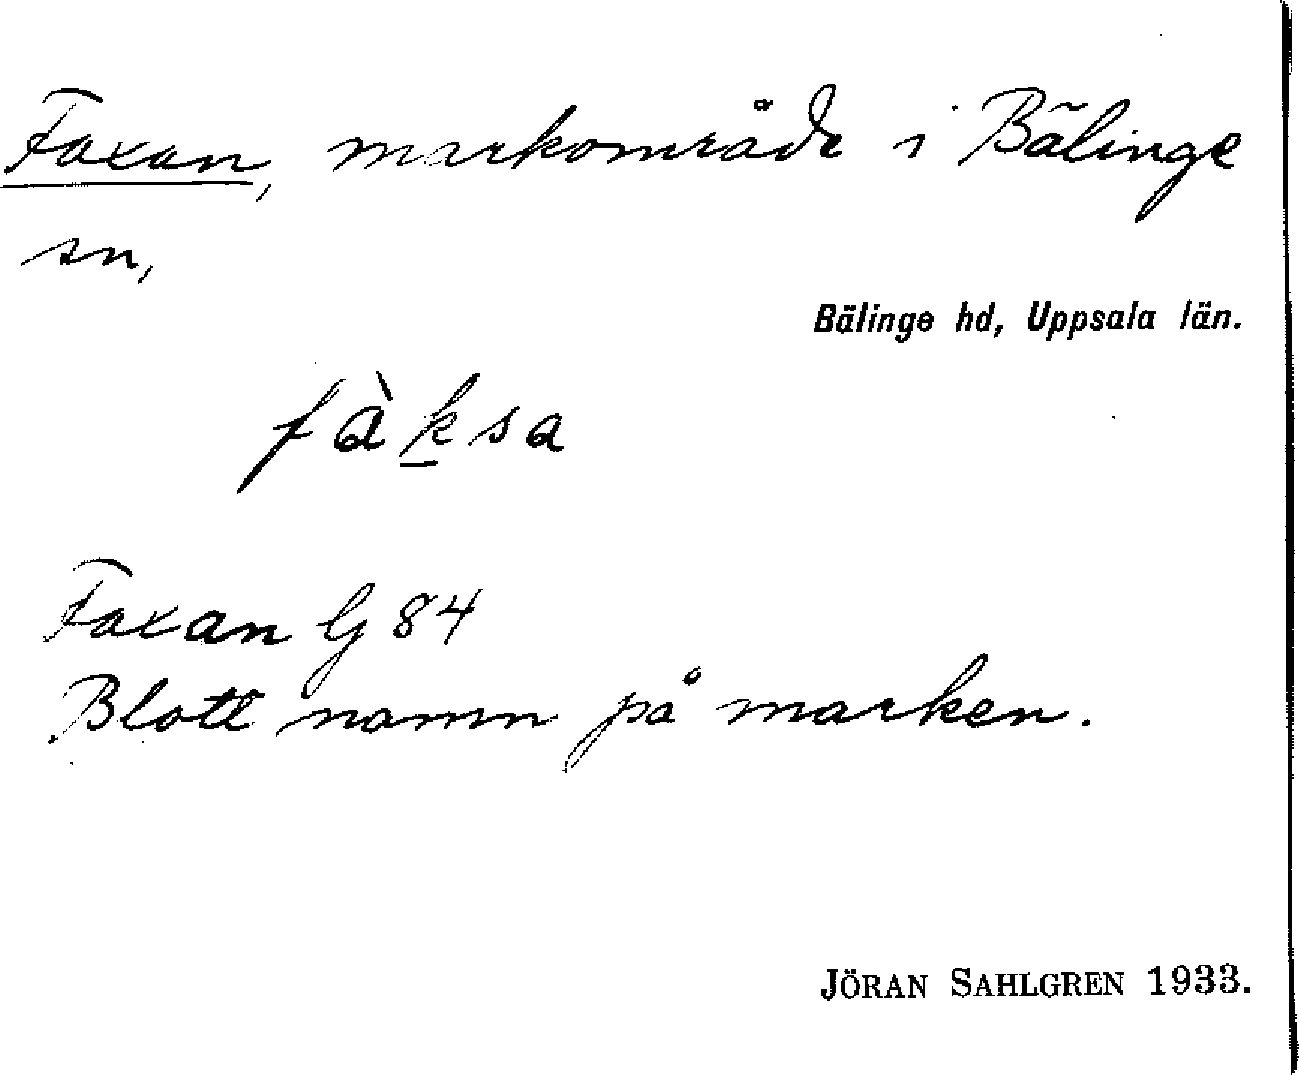 Faxan, markområde i Bälinge
sn,
Bälinge hd, Uppsala län.
fàksa
Faxan G 84
Blott namn på marken.
JÖRAN SAHLGREN 1933.